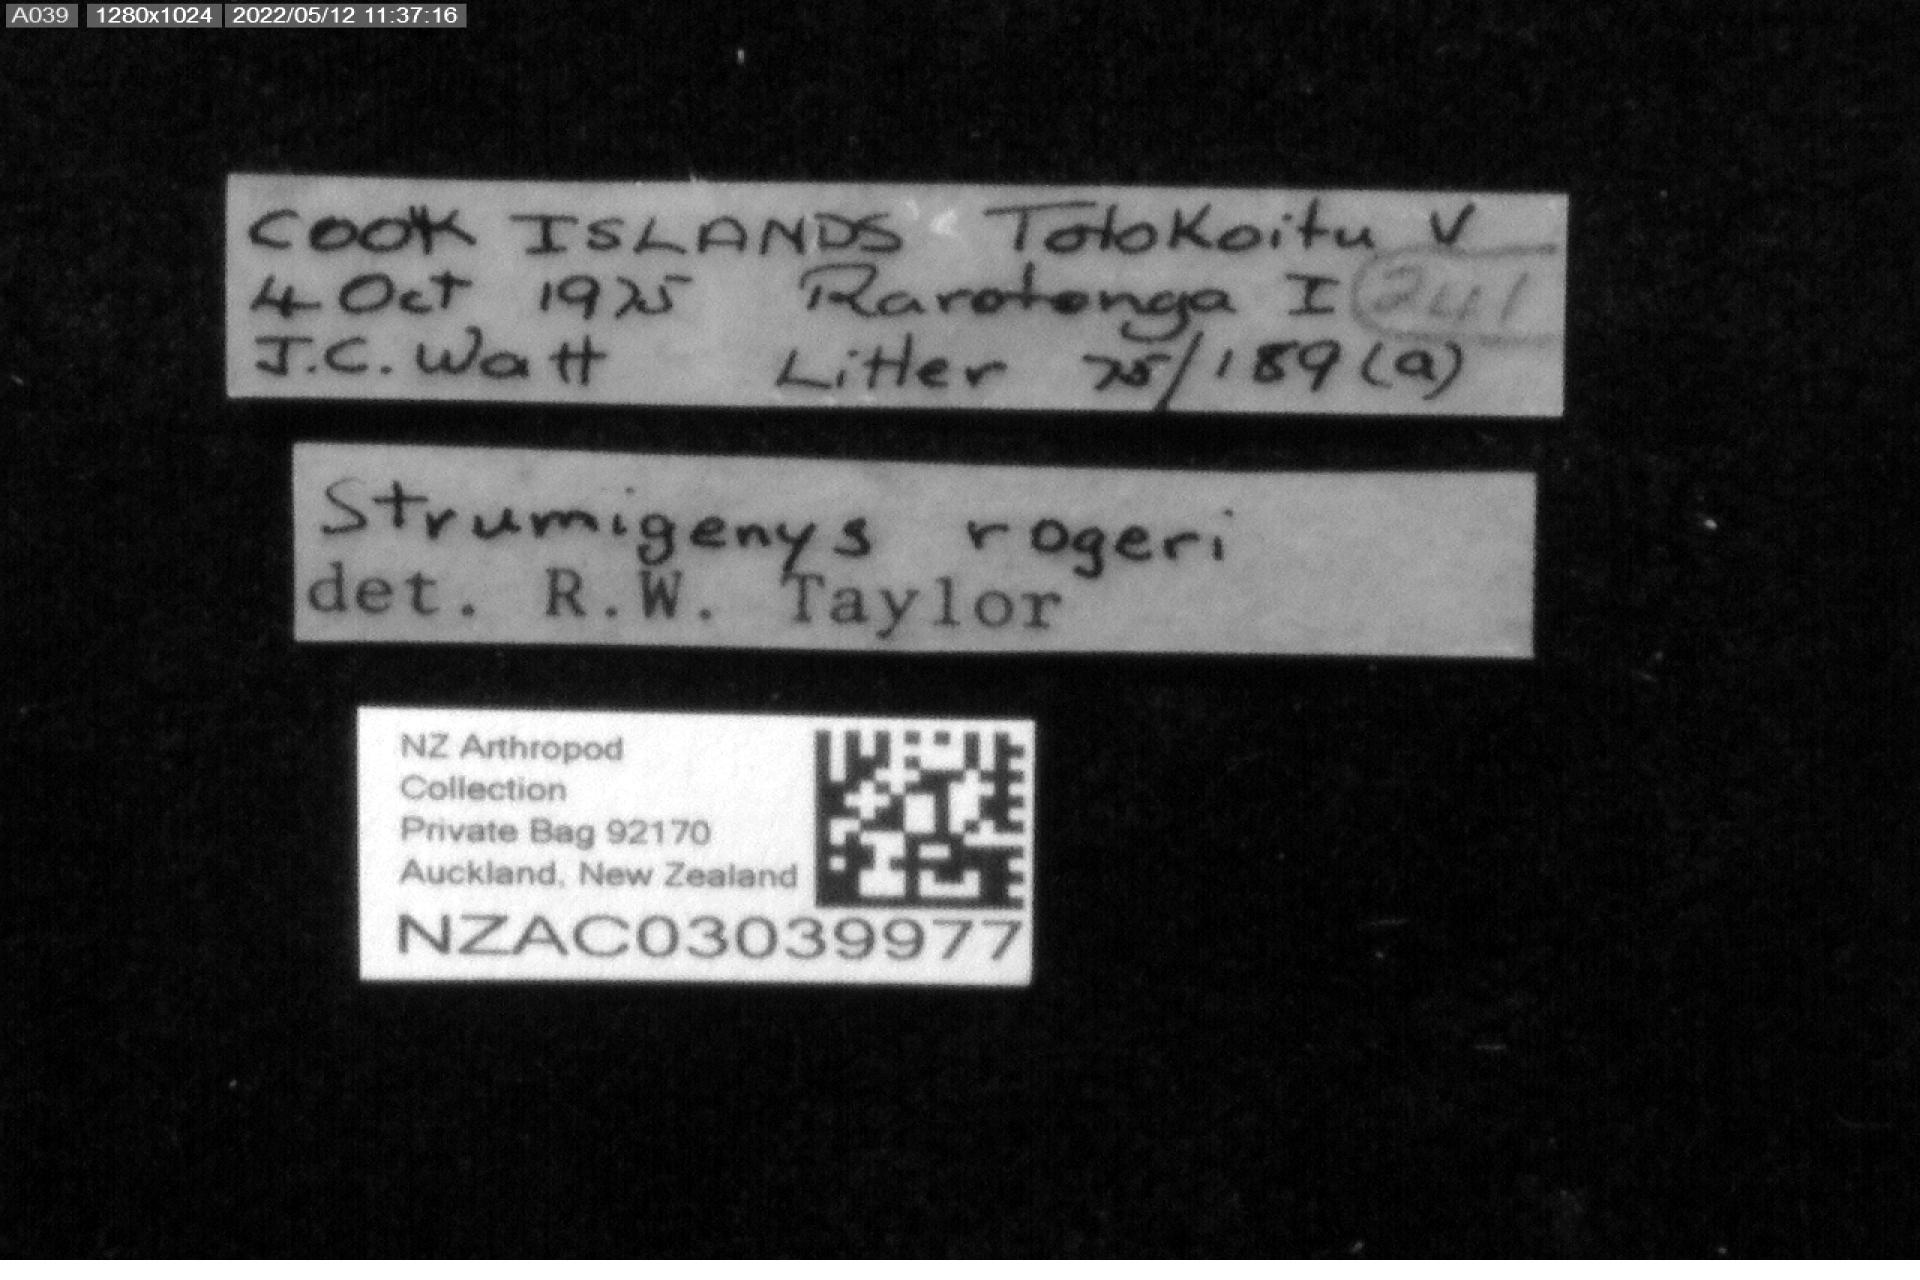 A039 1280x1024 2022/05/12 11:37:16
COOK ISLANDS Totokoitu V
4 Oct 1975 Rarotonga I 241
J.C. Watt Litter 75/189(a)
Strumigenys rogeri
det. R.W. Taylor
NZ Arthropod
Collection
Private Bag 92170
Auckland, New Zealand
NZAC03039977